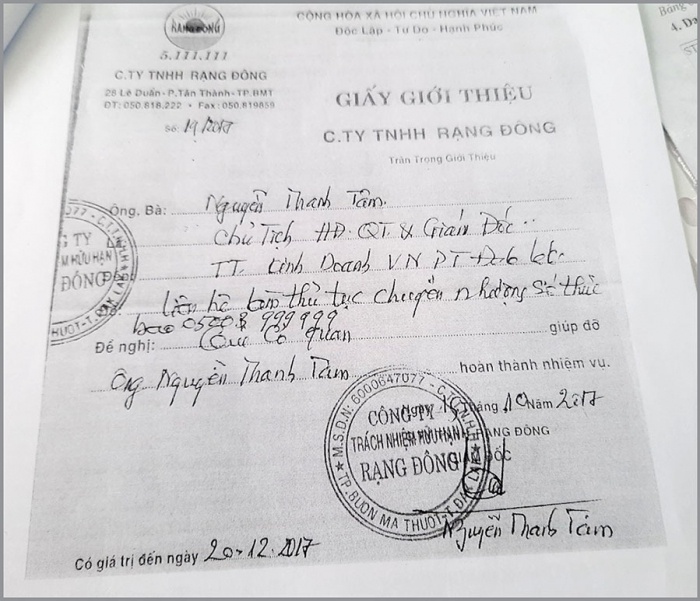 RẠNG ĐÔNG
5.111.111
C.TY TNHH RẠNG ĐÔNG
28 Lê Duẩn - P.Tân Thành - TP.BMT
ĐT: 050.818.222 • Fax: 050.819859
Số: 19/2017
CỘNG HÒA XÃ HỘI CHỦ NGHĨA VIỆT NAM
Độc Lập - Tự Do - Hạnh Phúc
GIẤY GIỚI THIỆU
C.TY TNHH RẠNG ĐÔNG
Trân Trọng Giới Thiệu
Ông. Bà: Nguyễn Thanh Tâm.
Chủ Tịch HĐ.QT & Giám Đốc
TT. Kinh Doanh VN PT Đăk Lăk.
Liên hệ làm thủ tục chuyển nhượng Số thuê
bao 999999
Đề nghị: Quý Cơ quan giúp đỡ
Ông Nguyễn Thanh Tâm hoàn thành nhiệm vụ.
Ngày tháng 10 Năm 2017
RẠNG ĐÔNG
GIÁM ĐỐC
M.S.D.N: 6000647077 - C.T.T.N.H.H
CÔNG TY
TRÁCH NHIỆM HỮU HẠN
RẠNG ĐÔNG
TP.BUÔN MA THUỘT-T.ĐĂK LĂK
Nguyễn Thanh Tâm
Có giá trị đến ngày 20-12-2017
077 - C.T.T.N.H.H
G TY
M HỮU HẠN
ĐÔNG
THUỘT-T.ĐĂK LĂK
4. Da